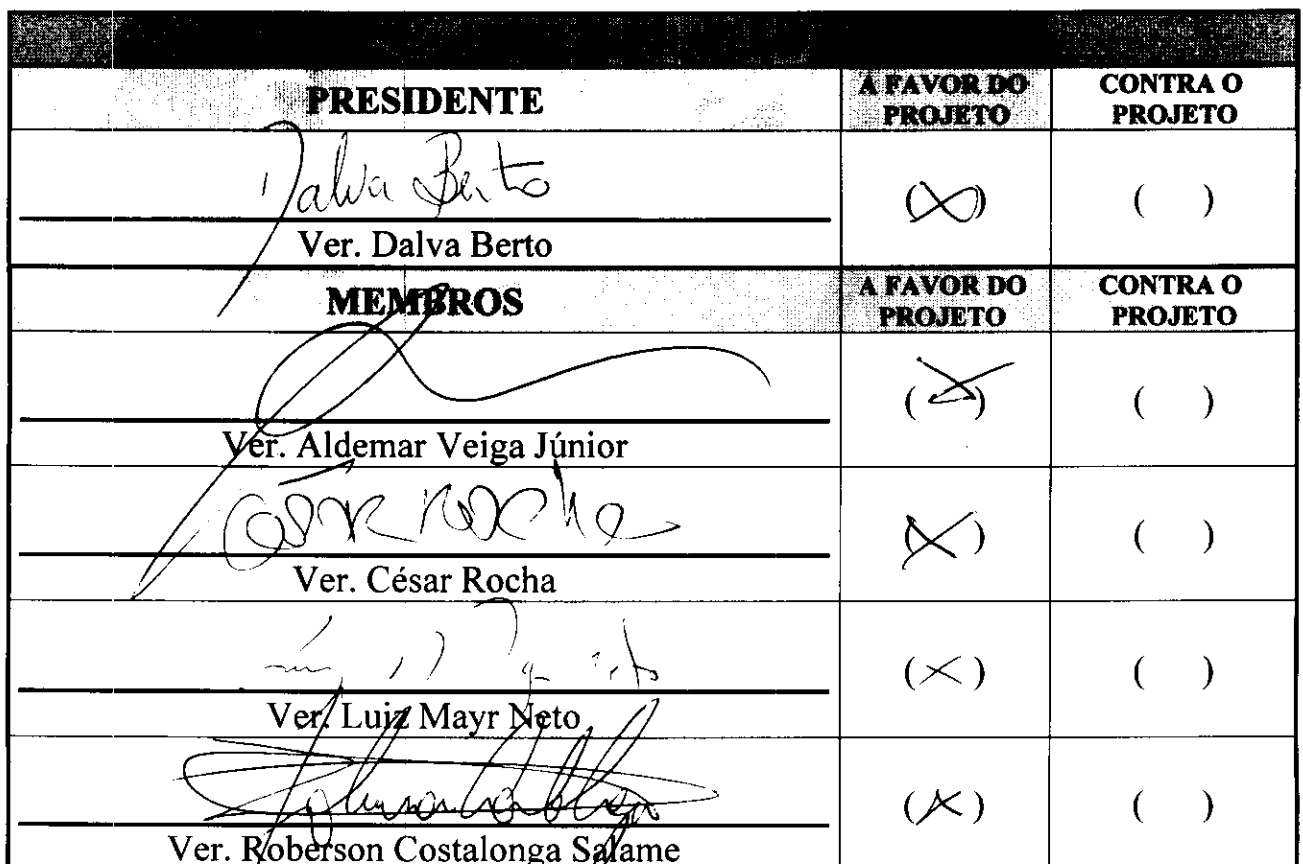 PRESIDENTE A FAVOR DO CONTRA O
PROJETO PROJETO
Dalva Berto (X) ( )
Ver. Dalva Berto
MEMBROS A FAVOR DO CONTRA O
PROJETO PROJETO
(X) ( )
Ver. Aldemar Veiga Júnior
César Rocha (X) ( )
Ver. César Rocha
(X) ( )
Ver. Luiz Mayr Neto
(X) ( )
Ver. Roberson Costalonga Salame